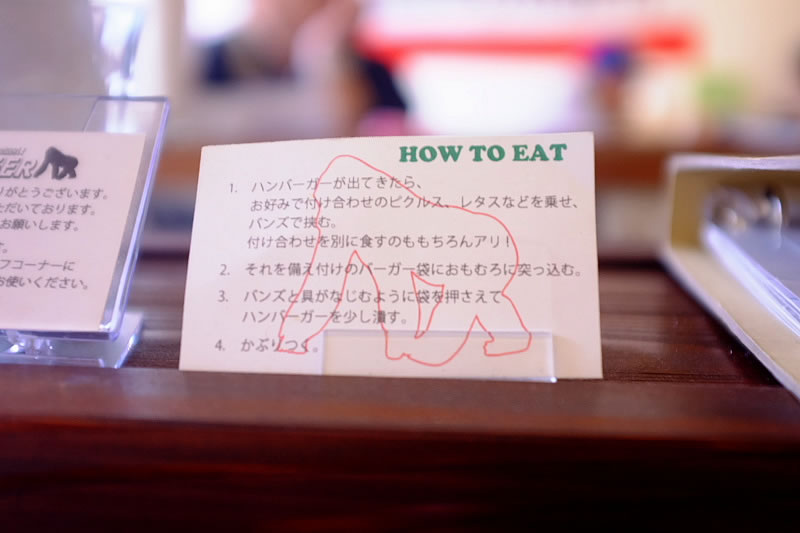 HOW TO EAT
1. ハンバーガーが出てきたら、
お好みで付け合わせのピクルス、レタスなどを乗せ、
バンズで挟む。
付け合わせを別に食すのももちろんアリ!
2. それを備え付けのバーガー袋におもむろに突っ込む。
3. バンズと具がなじむように袋を押さえて
ハンバーガーを少し潰す。
4. かぶりつく。
ER
りがとうございます。
ただいております。
お願いします。
す。
フコーナーに
お使いください。